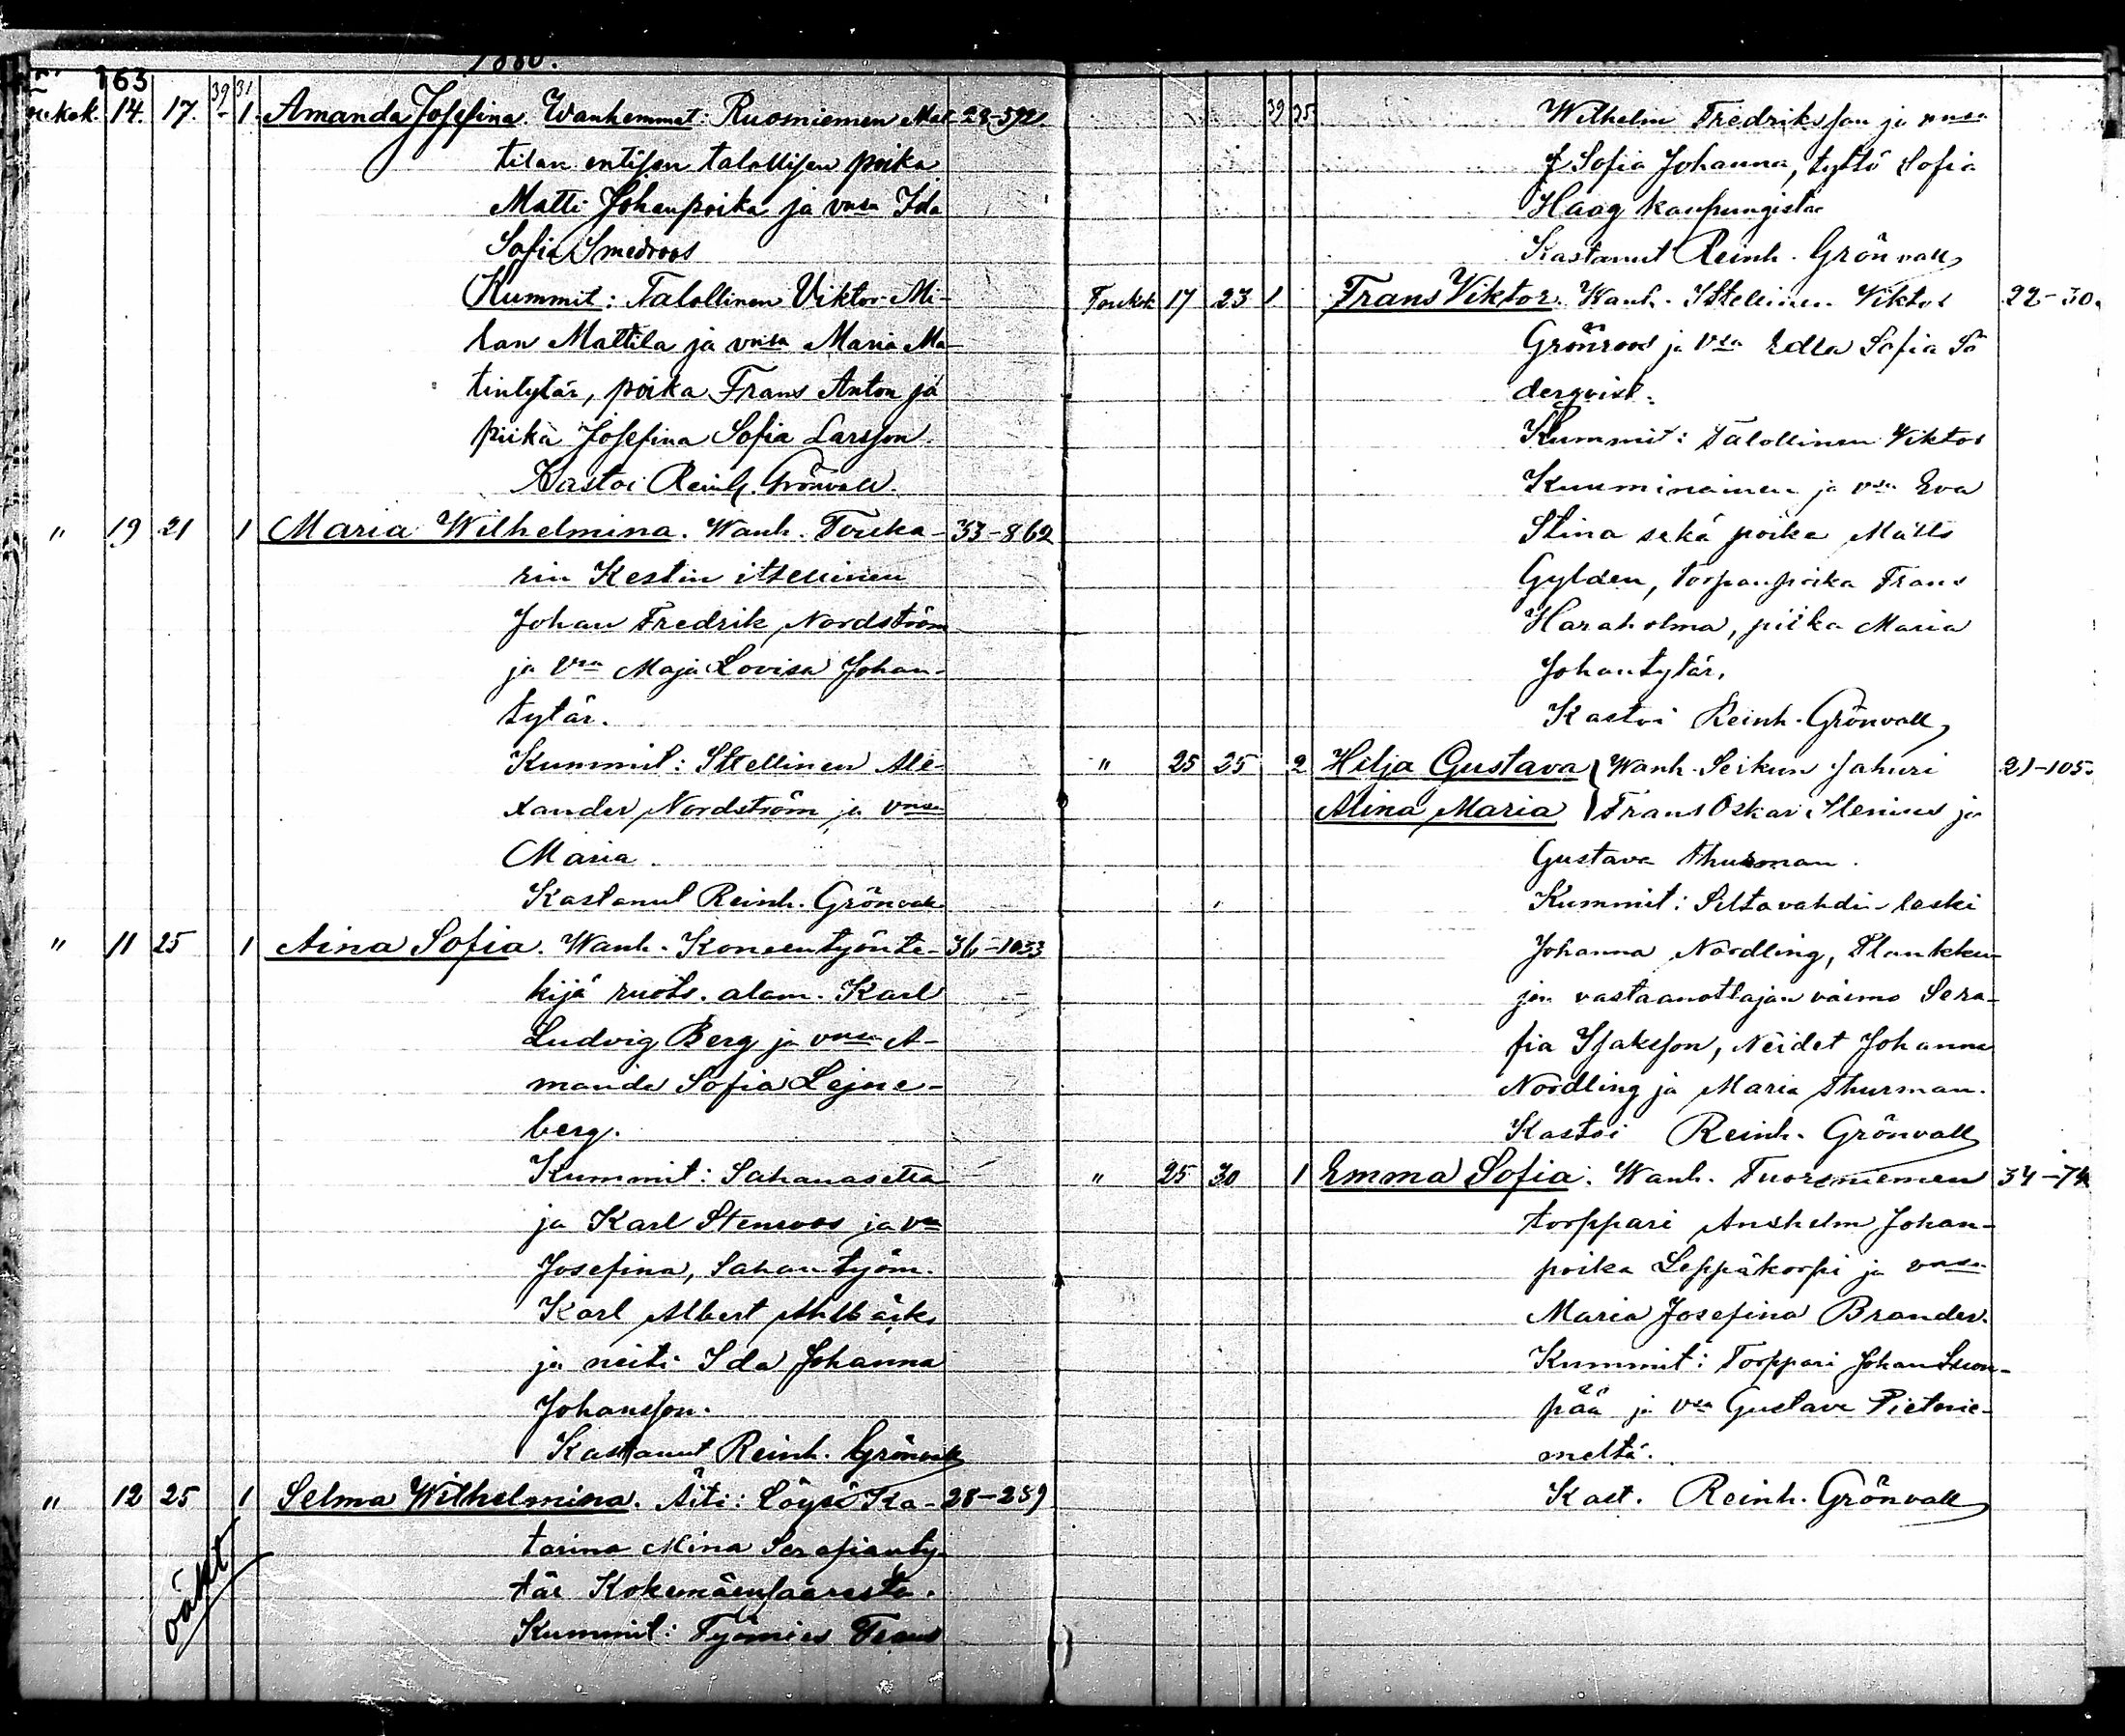 1880.
163
39 31
14. 17. 1. Amanda Josefina. Wanhemmat: Ruosniemen Mat- 28-592.
tilan entisen talollisen poika
Matti Johanpoika ja vmsa Ida
Sofia Smedroos
Kummit: Talollinen Viktor Mi-
lan Mattila ja vmsa Maria Ma-
tintytär, poika Frans Anton ja
piika Josefina Sofia Larsson.
Kastoi Reinh. Grönvall.
" 19 21 1 Maria Wilhelmina. Wanh. Touka- 33-862
rin Kestin itsellinen
Johan Fredrik Nordström
ja vsa Maja Lovisa Johan-
tytär.
Kummit: Itsellinen Ale-
xander Nordström ja vmsa
Maria.
Kastanut Reinh. Grönvall
" 11 25 1 Aina Sofia. Wanh. Koneentyönte- 36-1033
kijä ruots. alam. Karl
Ludvig Berg ja vmsa A-
manda Sofia Lejne-
berg.
Kummit: Sahanasetta-
ja Karl Stenroos ja vsa
Josefina, Sahantyöm.
Karl Albert Ahlbäck
ja neiti Ida Johanna
Johansson.
Kastanut Reinh. Grönvall
" 12 25 1 Selma Wilhelmina. Äiti: Löysä Ka- 28-259
tarina Mina Serafianty-
tär Kokemäensaaresta.
Kummit: Työmies Frans
oäkt
39 35
Wilhelm Fredriksson ja vmsa
Sofia Johanna, tyttö Sofia
Haag kaupungista
Kastanut Reinh. Grönvall
Toukok 17 23 1 Frans Viktor. Wanh. Itsellinen Viktor 22-30.
Grönroos ja vsa Edla Sofia Sö
derqvist.
Kummit: Talollinen Viktor
Kuuminainen ja vsa Eva
Stina sekä poika Matts
Gylden, torpanpoika Frans
Haraholma, piika Maria
Johantytär.
Kastoi Reinh. Grönvall
" 25 25 2 Hilja Gustava Wanh. Seikun Jahuri 21-105.
Alina Maria Frans Oskar Stenius ja
Gustava Thurman.
Kummit: Siltavahdin-leski
Johanna Nordling, Plankku-
jen vastaanottajan vaimo Sera-
fia Isaksson, Neidet Johanna
Nordling ja Maria Thurman.
Kastoi Reinh. Grönvall
" 25 30 1 Emma Sofia. Wanh. Tuorsniemen 34-74
torppari Anshelm Johan-
poika Leppäkorpi ja vmsa
Maria Josefina Brander.
Kummit: Torppari Johan Suon-
pää ja vsa Gustava Pietnie-
meltä.
Kast. Reinh. Grönvall